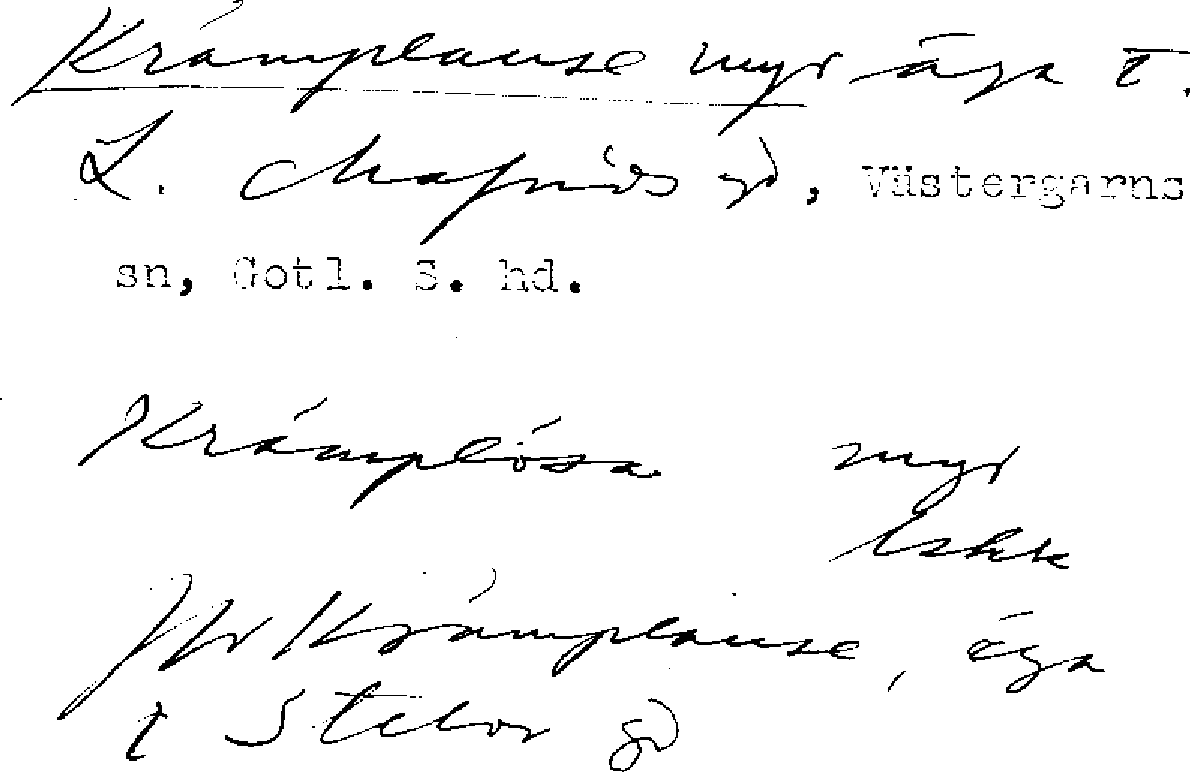 Krámplause myr äga t.
L. Mafrids gd, Västergarns
sn, Gotl. S. hd.
Krámplósa myr
Eskk
Jfr Krámplause, äga
t Stelor gd